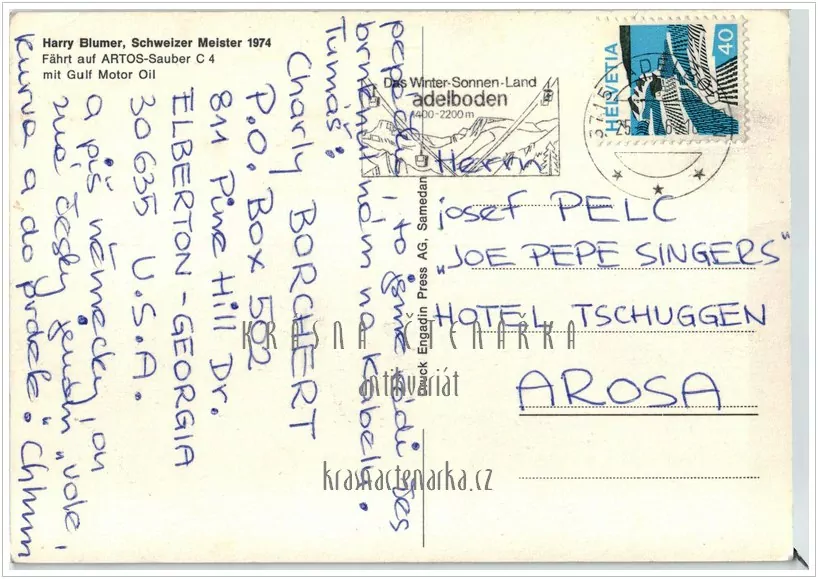 Harry Blumer, Schweizer Meister 1974
Fährt auf ARTOS-Sauber C 4
mit Gulf Motor Oil
pepečku, to jsme rádi žes
brnknul nám na kabelu.
Tumáš:
Charly BORCHERT
P.O. Box 502
811 Pine Hill Dr.
ELBERTON-GEORGIA
30635 U.S.A.
a piš německy, on
zná česky jenom „vole,
kurva a do prdele. Chmm
Das Winter-Sonnen-Land
adelboden
1400-2200m
HELVETIA
40
3715 ADELBODEN
Druck Engadin Press AG, Samedan
Herrn
josef PELC
„JOE PEPE SINGERS"
HOTEL TSCHUGGEN
AROSA
KRÁSNÁ ČTENÁŘKA
antikvariát
krasnactenarka.cz